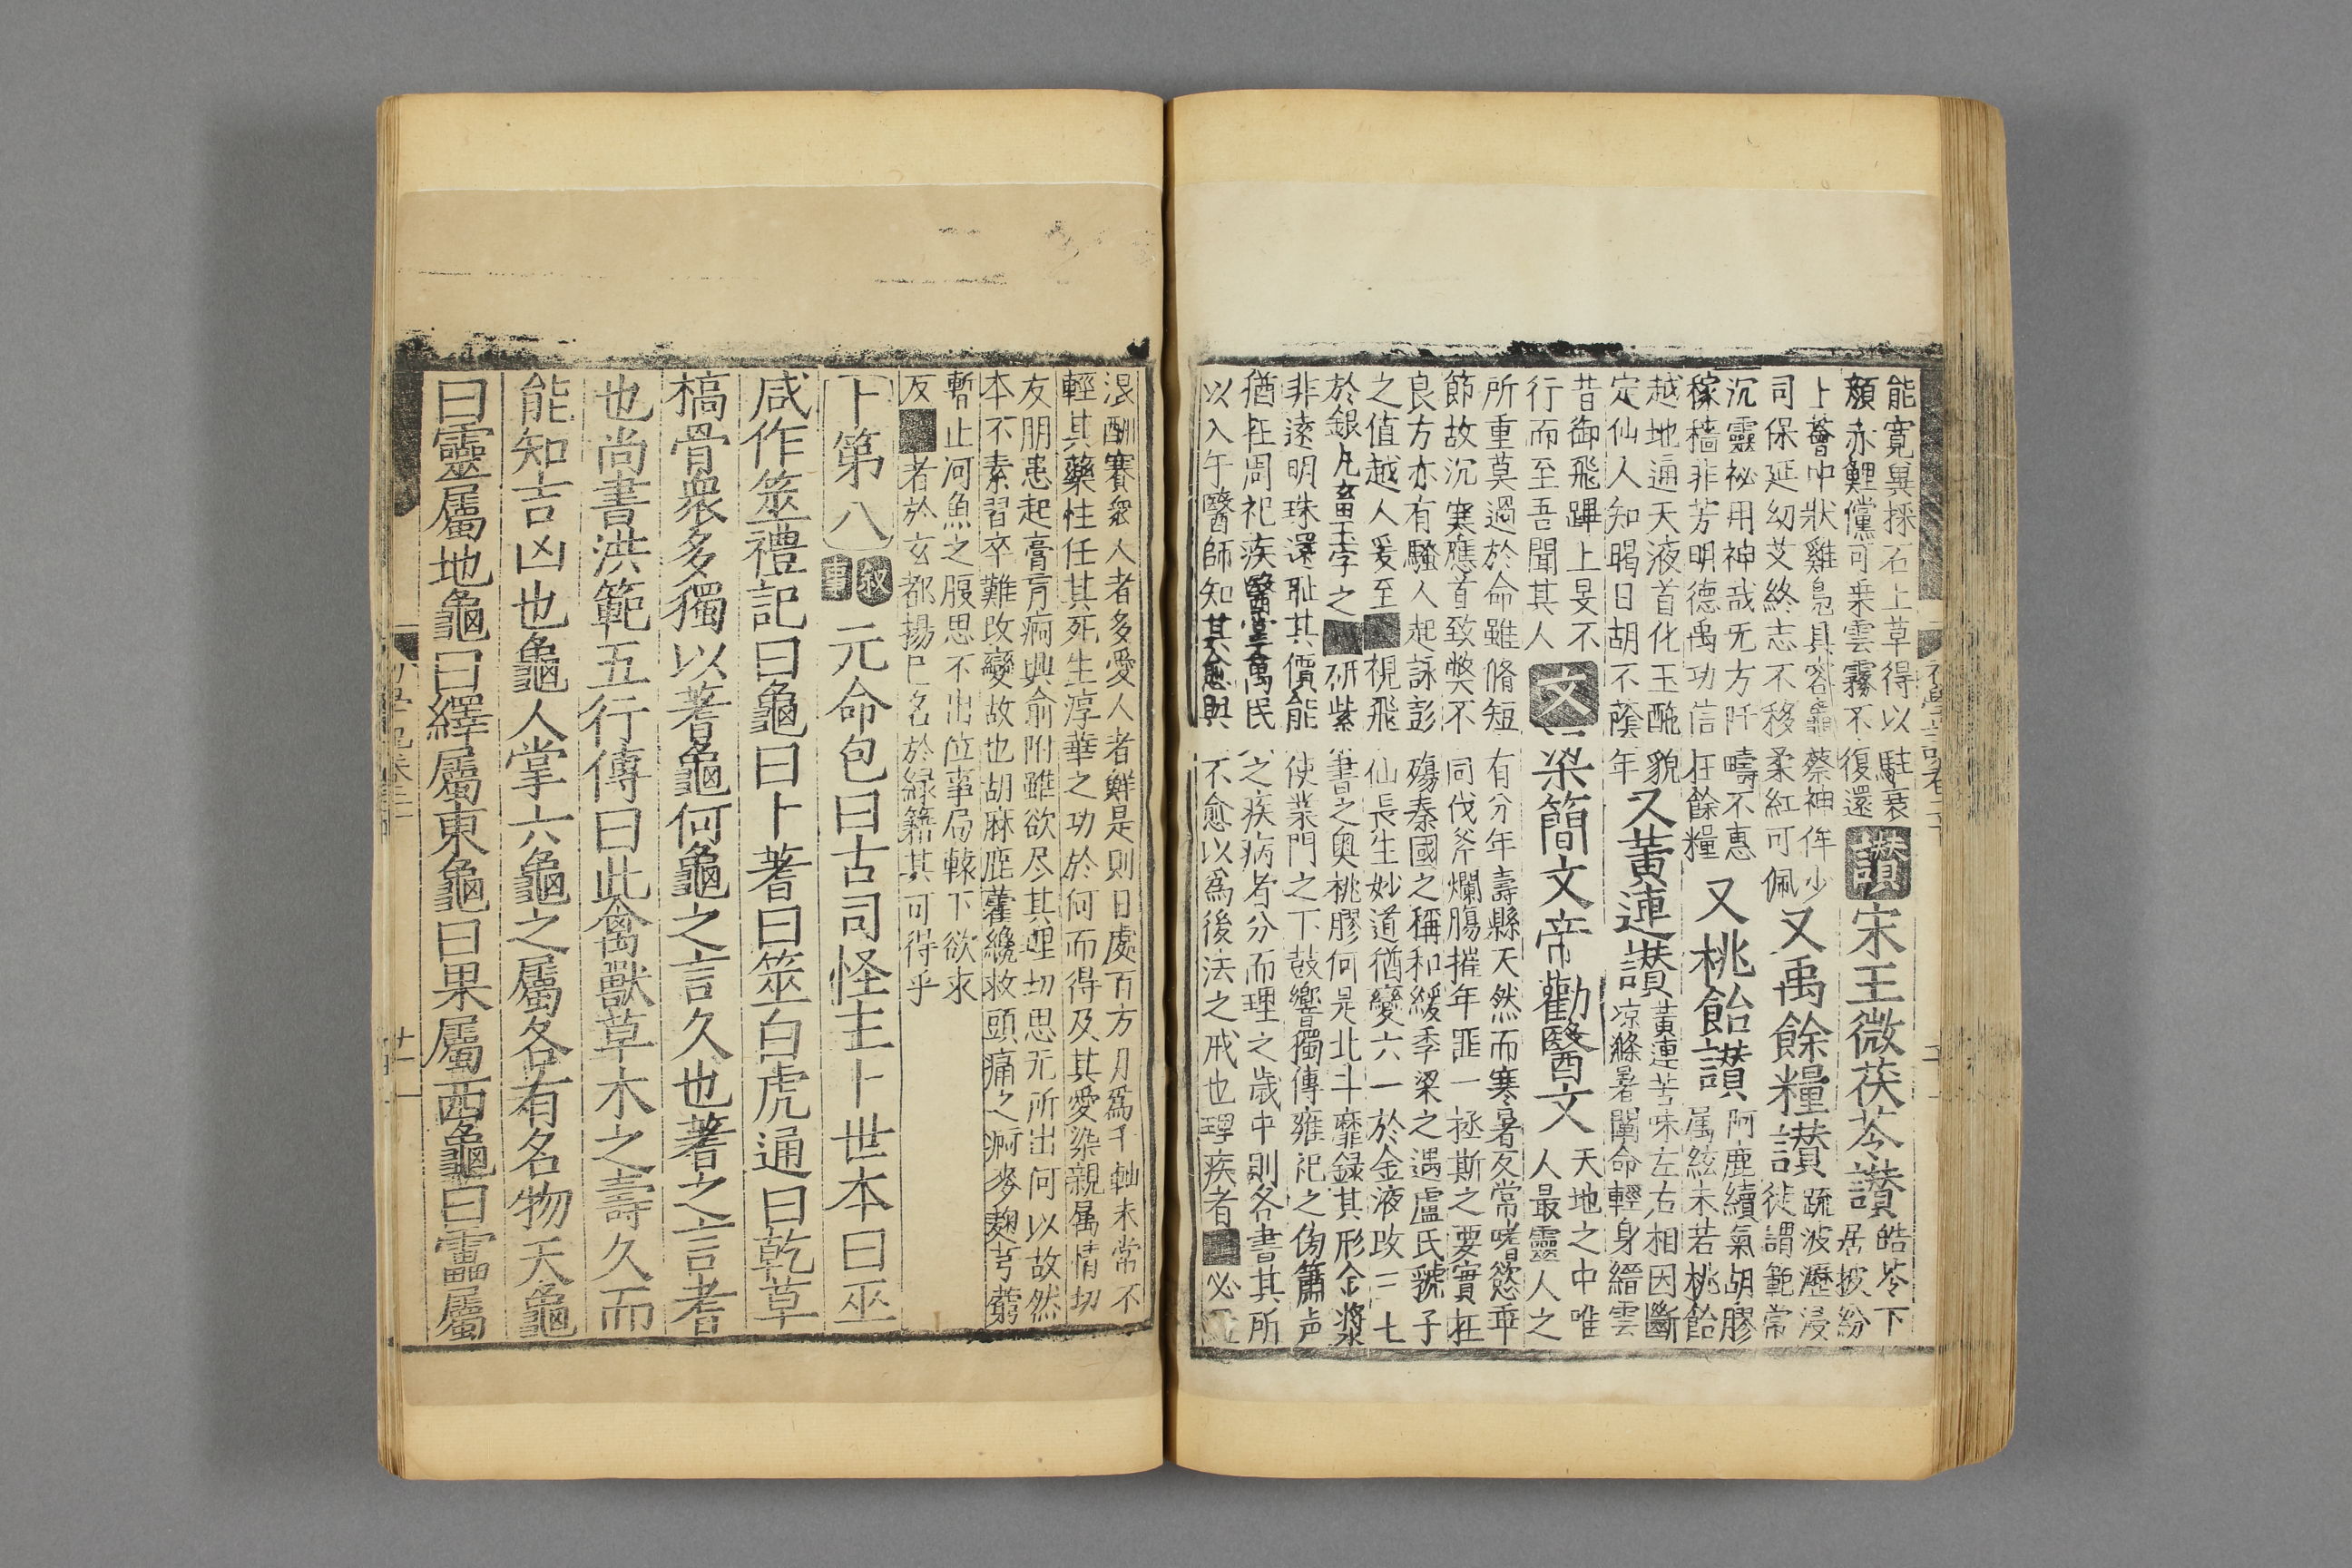 能寛異採石上草得以駐衰
顏赤鯉儻可乗雲霧不復還
讃 宋王微茯苓讃
皓苓下
居披紛
上薈中狀雞鳬具容龜蔡神侔少
司保延幼艾終志不移柔紅可佩
又禹餘糧讃
疏波瀝浸
徒謂範常
沉靈祕用神哉无方阡疇不惠
稼穡非芳明德禹功信在餘糧
又桃飴讃
阿鹿續氣胡膠
属絃未若桃飴
越地通天液首化玉酏貌
定仙人知暍日胡不䕃年
又黄連讃
黄連苦味左右相因斷
凉滌暑闡命輕身縉雲
昔御飛蹕上旻不
行而至吾聞其人
文 梁簡文帝勸醫文
天地之中唯
人最靈人之
所重莫過於命雖脩短有分年壽縣天然而寒暑反常嗜慾乖
節故沉寒應首致獘不同伐斧爛腸摧年匪一拯斯之要實在
良方亦有騷人起詠彭殤秦國之稱和緩季梁之遇盧氏虢子
之值越人爰至視飛仙長生妙道猶變六一於金液改三七
於銀丸畜玉字之研紫書之奥桃膠何是北斗靡録其形金漿
非遠明珠還耻其價能使業門之下鼓響獨傳雍祀之傍簫声
猶在周祀疾醫掌萬民之疾病者分而理之歳中則各書其所
以入于醫師知其愈與不愈以爲後法之戒也理疾者必
浪酬賽衆人者多愛人者鮮是則日處百方月爲千軸未常不
輕其藥性任其死生淳華之功於何而得及其愛染親属情切
友朋患起膏肓痾興俞附雖欲尽其理切思无所出何以故然
本不素習卒難改變故也胡麻鹿藿纔救頭痛之痾麥麴芎藭
暫止河魚之腹思不出位事局轅下欲求
反者於玄都揚已名於緑籍其可得乎
卜第八 叙事 元命包曰古司怪主卜世本曰巫
咸作筮禮記曰龜曰卜蓍曰筮白虎通曰乾草
槁骨衆多獨以蓍龜何龜之言久也蓍之言耆
也尚書洪範五行傳曰此禽獸草木之壽久而
能知吉凶也龜人掌六龜之屬各有名物天龜
曰靈屬地龜曰繹屬東龜曰果屬西龜曰靁屬